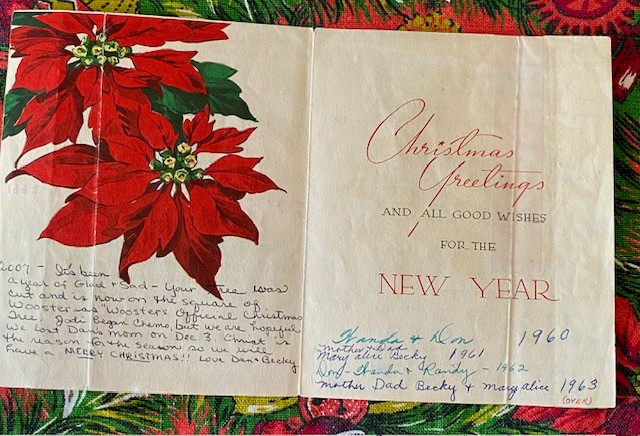 2007 - It's been
a year of Glad & Sad - Your tree was
cut and is now on the square of
Wooster as "Wooster's Official Christmas
Tree". Jodi began Chemo, but we are hopeful.
We lost Dan's mom on Dec 3. Christ is
the reason for the season so we will
have a MERRY CHRISTMAS!! Love Dan & Becky
Christmas
Greetings
AND ALL GOOD WISHES
FOR THE
NEW YEAR
Wanda & Don 1960
Mother & Dad
Mary Alice Becky 1961
Don - Wanda & Randy - 1962
Mother Dad Becky & Mary Alice 1963
(OVER)